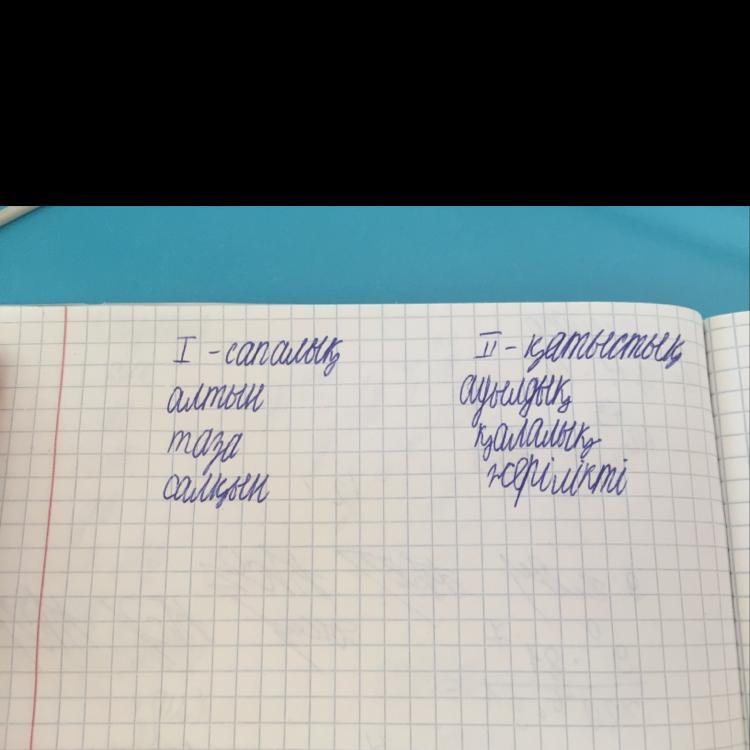 I - сапалық
алтын
таза
салқын
II - қатыстық
ауылдық
қалалық
жерілікті